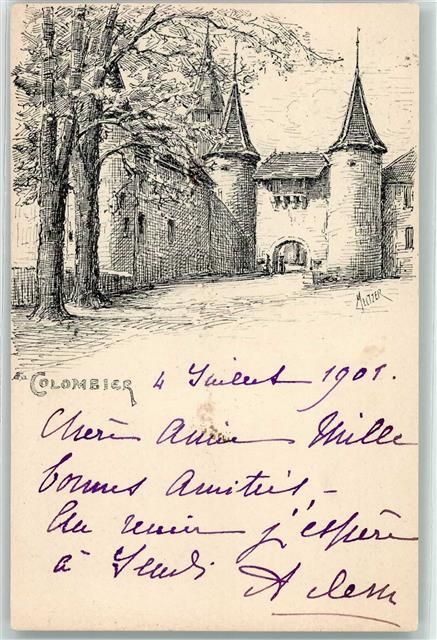 MUTTER
COLOMBIER 4 Juillet 1901.
Chère Amie Mille
bonnes Amitiés, -
Au revoir j'espère
à Jeudi